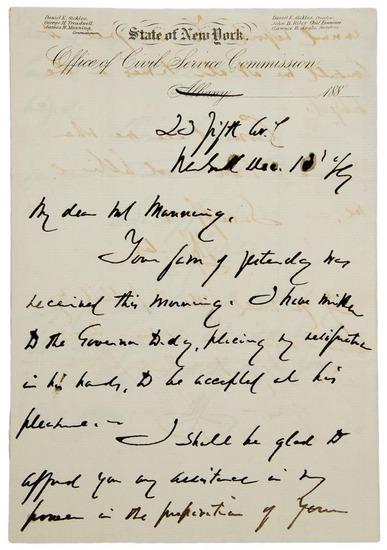 Daniel E. Sickles,
George H. Treadwell,
James H. Manning,
Commissioners.
State of New York.
Daniel E. Sickles, President
John B. Riley Chief Examiner
Clarence B. Angle, Secretary
Office of Civil Service Commission.
Albany 188
23 Fifth Av
Dec. 13
My dear Mr Manning,
Your favor of yesterday was
received this morning. I have written
to the Governor to-day, placing my resignation
in his hands, to be accepted at his
pleasure.
I shall be glad to
afford you any assistance in my
power in the preparation of your